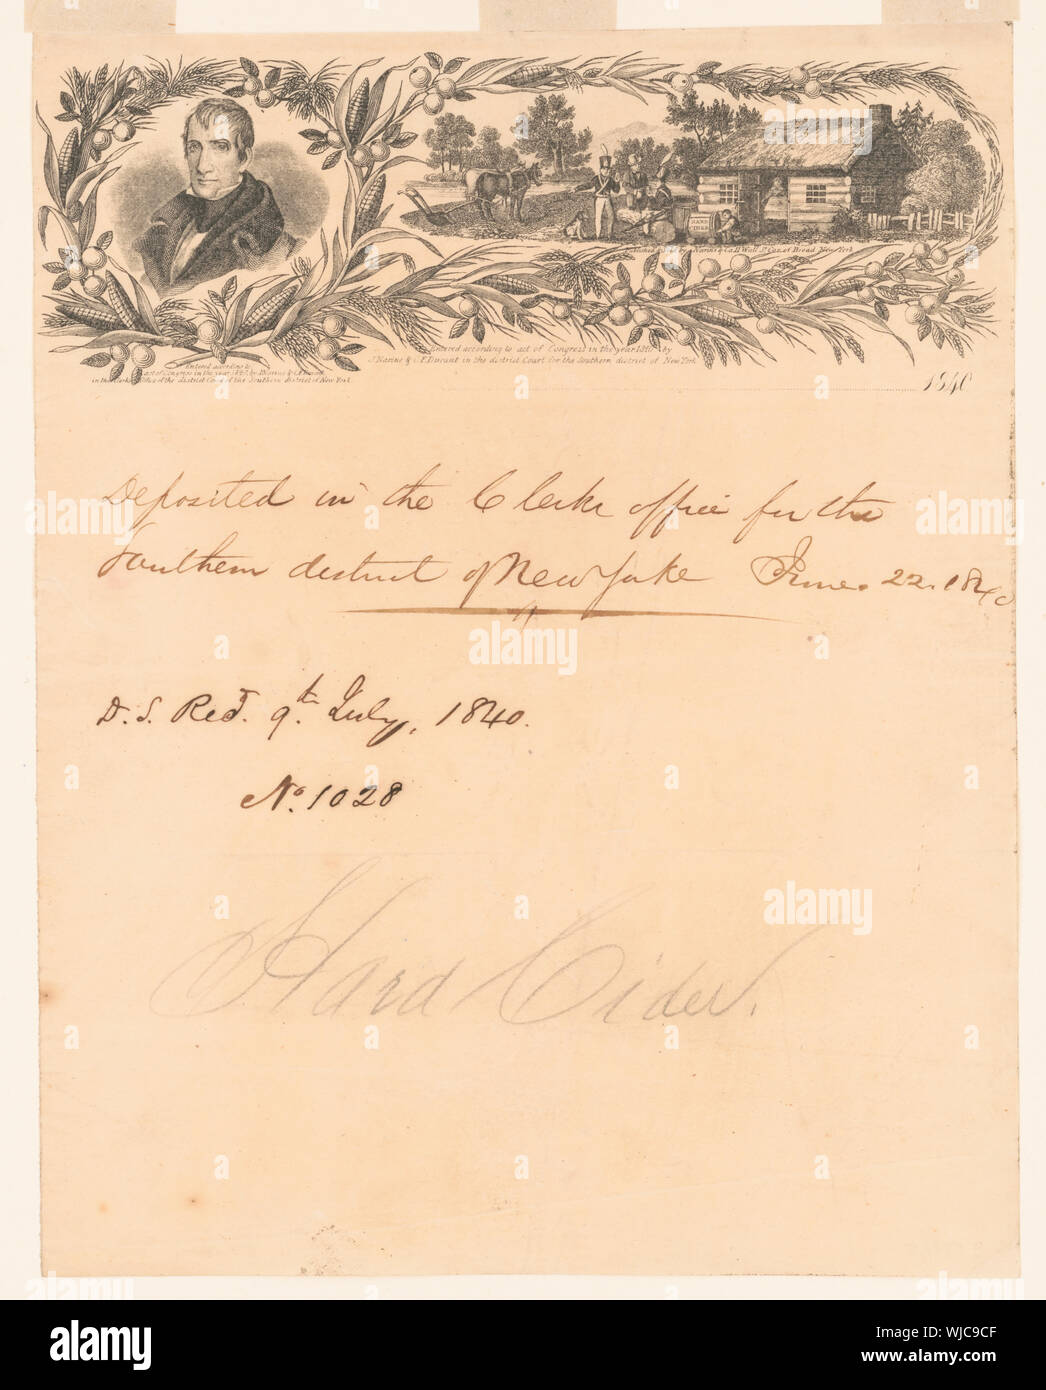 HARD CIDER
Entered according to act of Congress in the year 1840 by
J. Narine & C.F. Durant in the district Court for the Southern district of New York
Entered according to
act of Congress in the year 1840, by J. Narine &
in the Clerks Office of the district Court of the Southern district of New York
1840
Deposited in the Clerks office for the
Southern district of New Yorke June. 22. 1840
D. S. Recd. 9th. July, 1840.
No. 1028
Hard Cider.
a
alamy
alamy
Image ID: WJC9CF
www.alamy.com